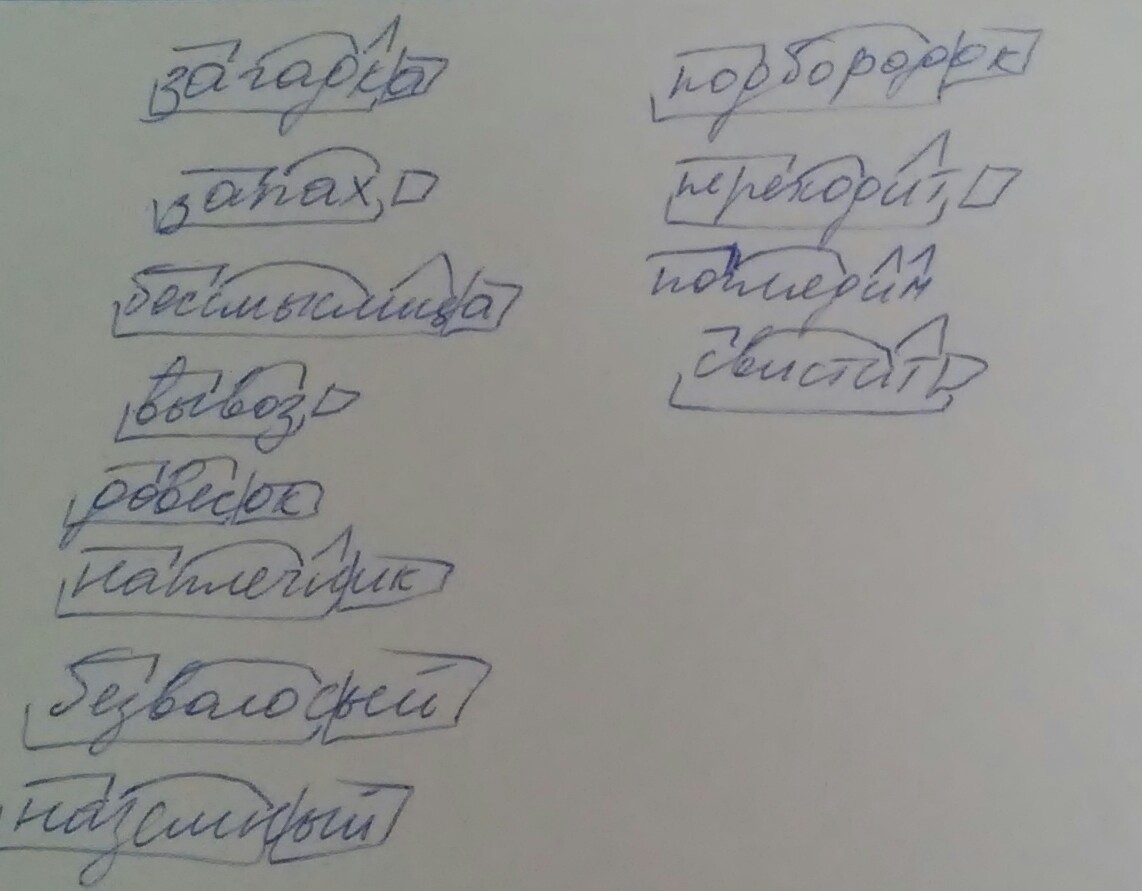 загадка
запах
бессмыслица
вывоз
довесок
наплечник
безволосый
наземный
подбородок
переходит
поглядим
свистит